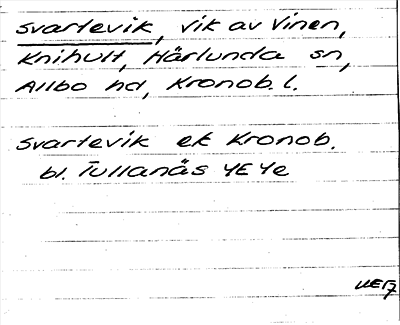 Svartevik, vik av Vinen,
Knihult, Härlunda sn,
Allbo hd, Kronob. l.
Svartevik ek Kronob.
bl. Tullanäs 4E4e